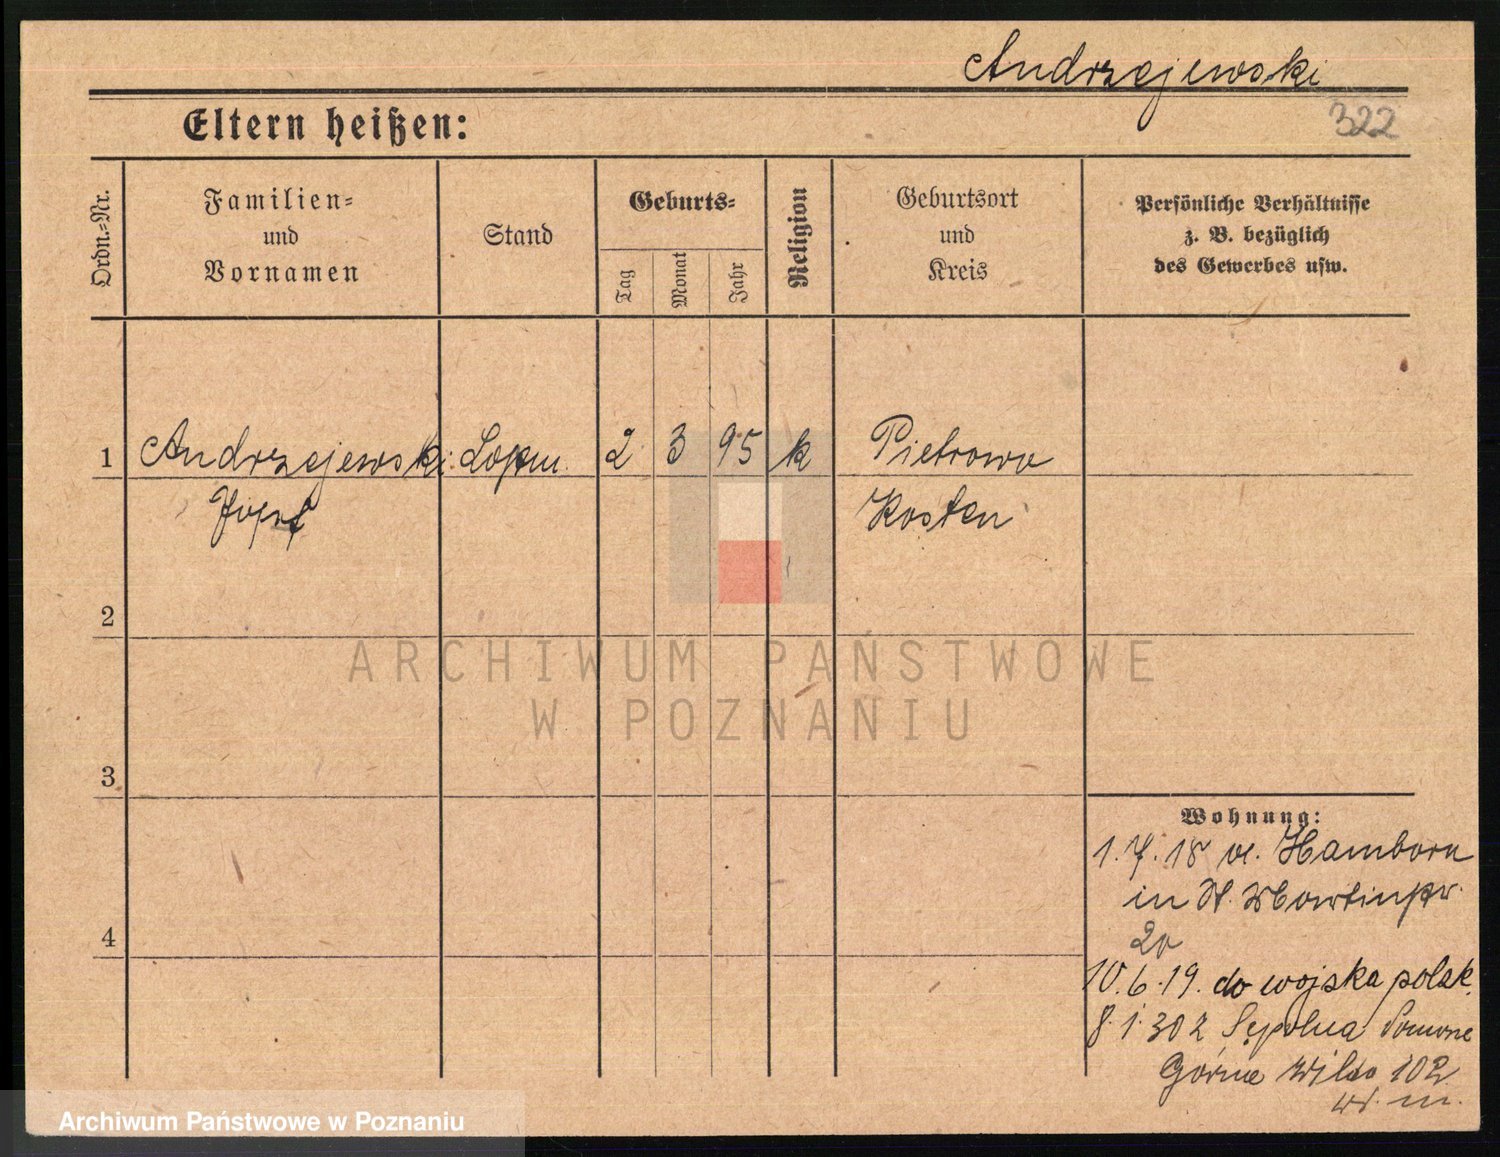 Andrzejewski
322
Eltern heißen:
Ordn.-Nr.
Familien-
und
Vornamen
Stand
Geburts-
Tag
Monat
Jahr
Religion
Geburtsort
und
Kreis
Persönliche Verhältnisse
z. B. bezüglich
des Gewerbes usw.
1 Andrzejewski 2 3 95 k Pietrowo
Josef Kosten
2
ARCHIWUM PAŃSTWOWE
W POZNANIU
3
4
Wohnung:
1.7.18 Hamborn
in St. Martinstr.
10.6.19. do wojska polsk.
8.1.30 z Sępolna
Górna Wilda 102
Archiwum Państwowe w Poznaniu